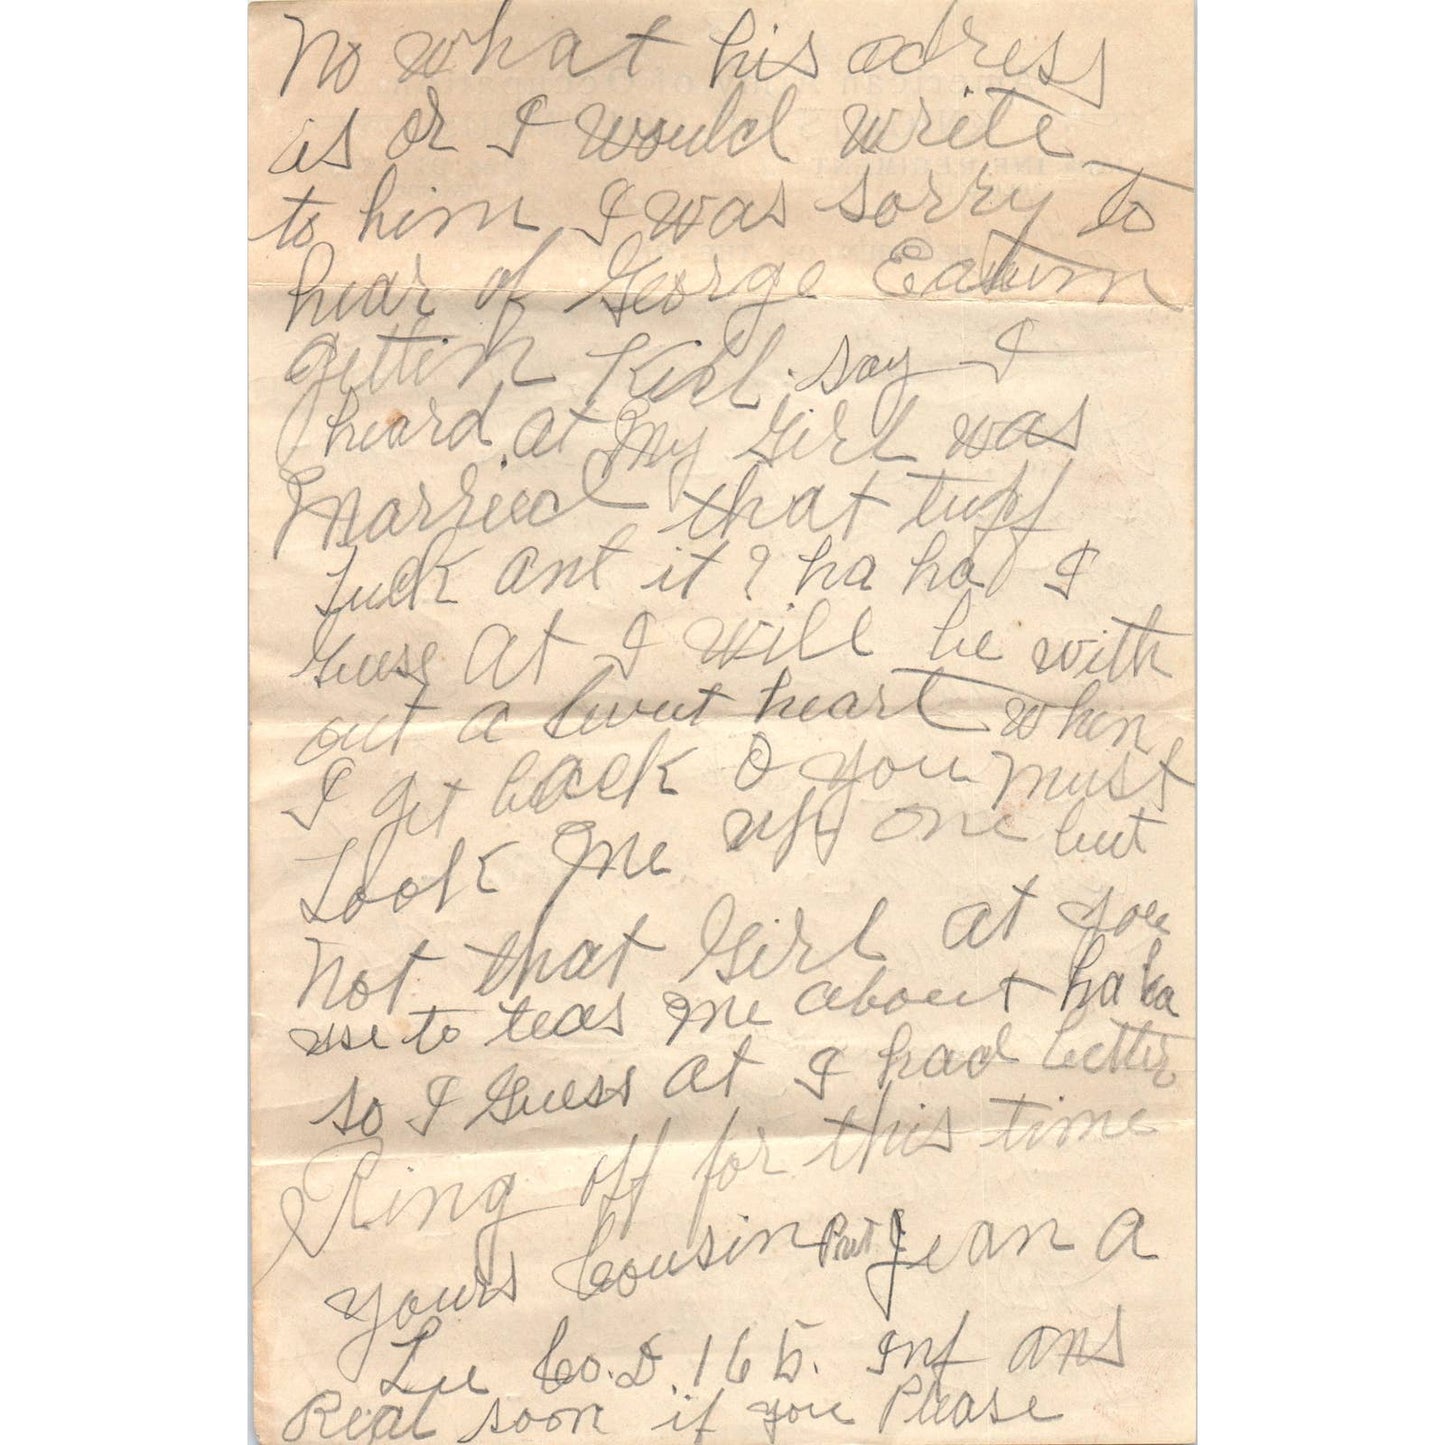 No what his adress
is or I would write
to him I was sorry to
hear of George Eastom
gettin Kild. say I
heard at my Girl was
Married that tuff
luck ant it? ha ha I
Guess at I will be with
out a sweet heart when
I get back O you must
Look me up one but
not that Girl at you
use to teas me about ha ha
so I Guess at I had better
Ring off for this time
yours Cousin Pvt Jean A
Lee Co. D. 165. Inf ans
Real soon if you Please